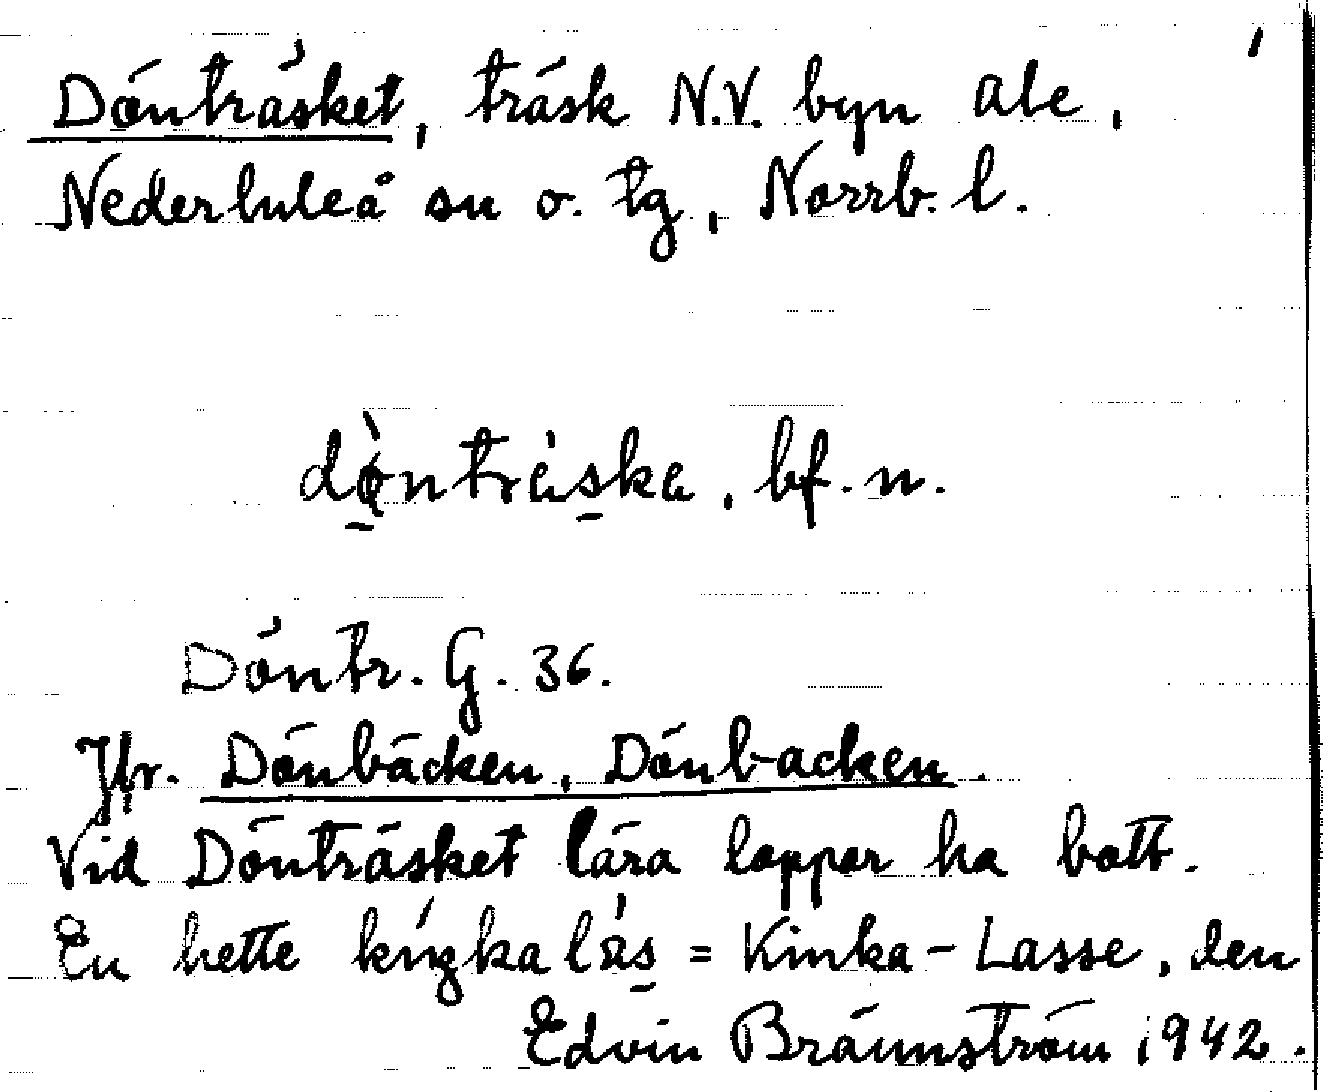 Dönträsket, träsk N.V. byn Ale,
Nederluleå sn o. tg, Norrb. l.
dö̀nträska, bf. n.
Döntr. G. 36.
Jfr. Dönbäcken, Dönbacken.
Vid Dönträsket lära lappar ha bott.
En hette kíŋkalás = Kinka-Lasse, den
Edvin Brännström 1942.